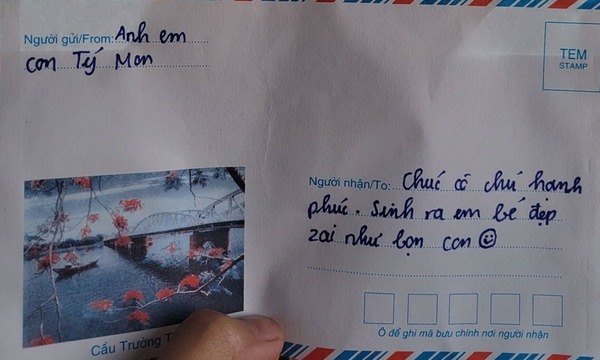 Người gửi/From: Anh em
con Tý Mon
TEM
STAMP
Người nhận/To: Chúc cô chú hạnh
phúc. Sinh ra em bé đẹp
zai như bọn con
Ô để ghi mã bưu chính nơi người nhận
Cầu Trường T